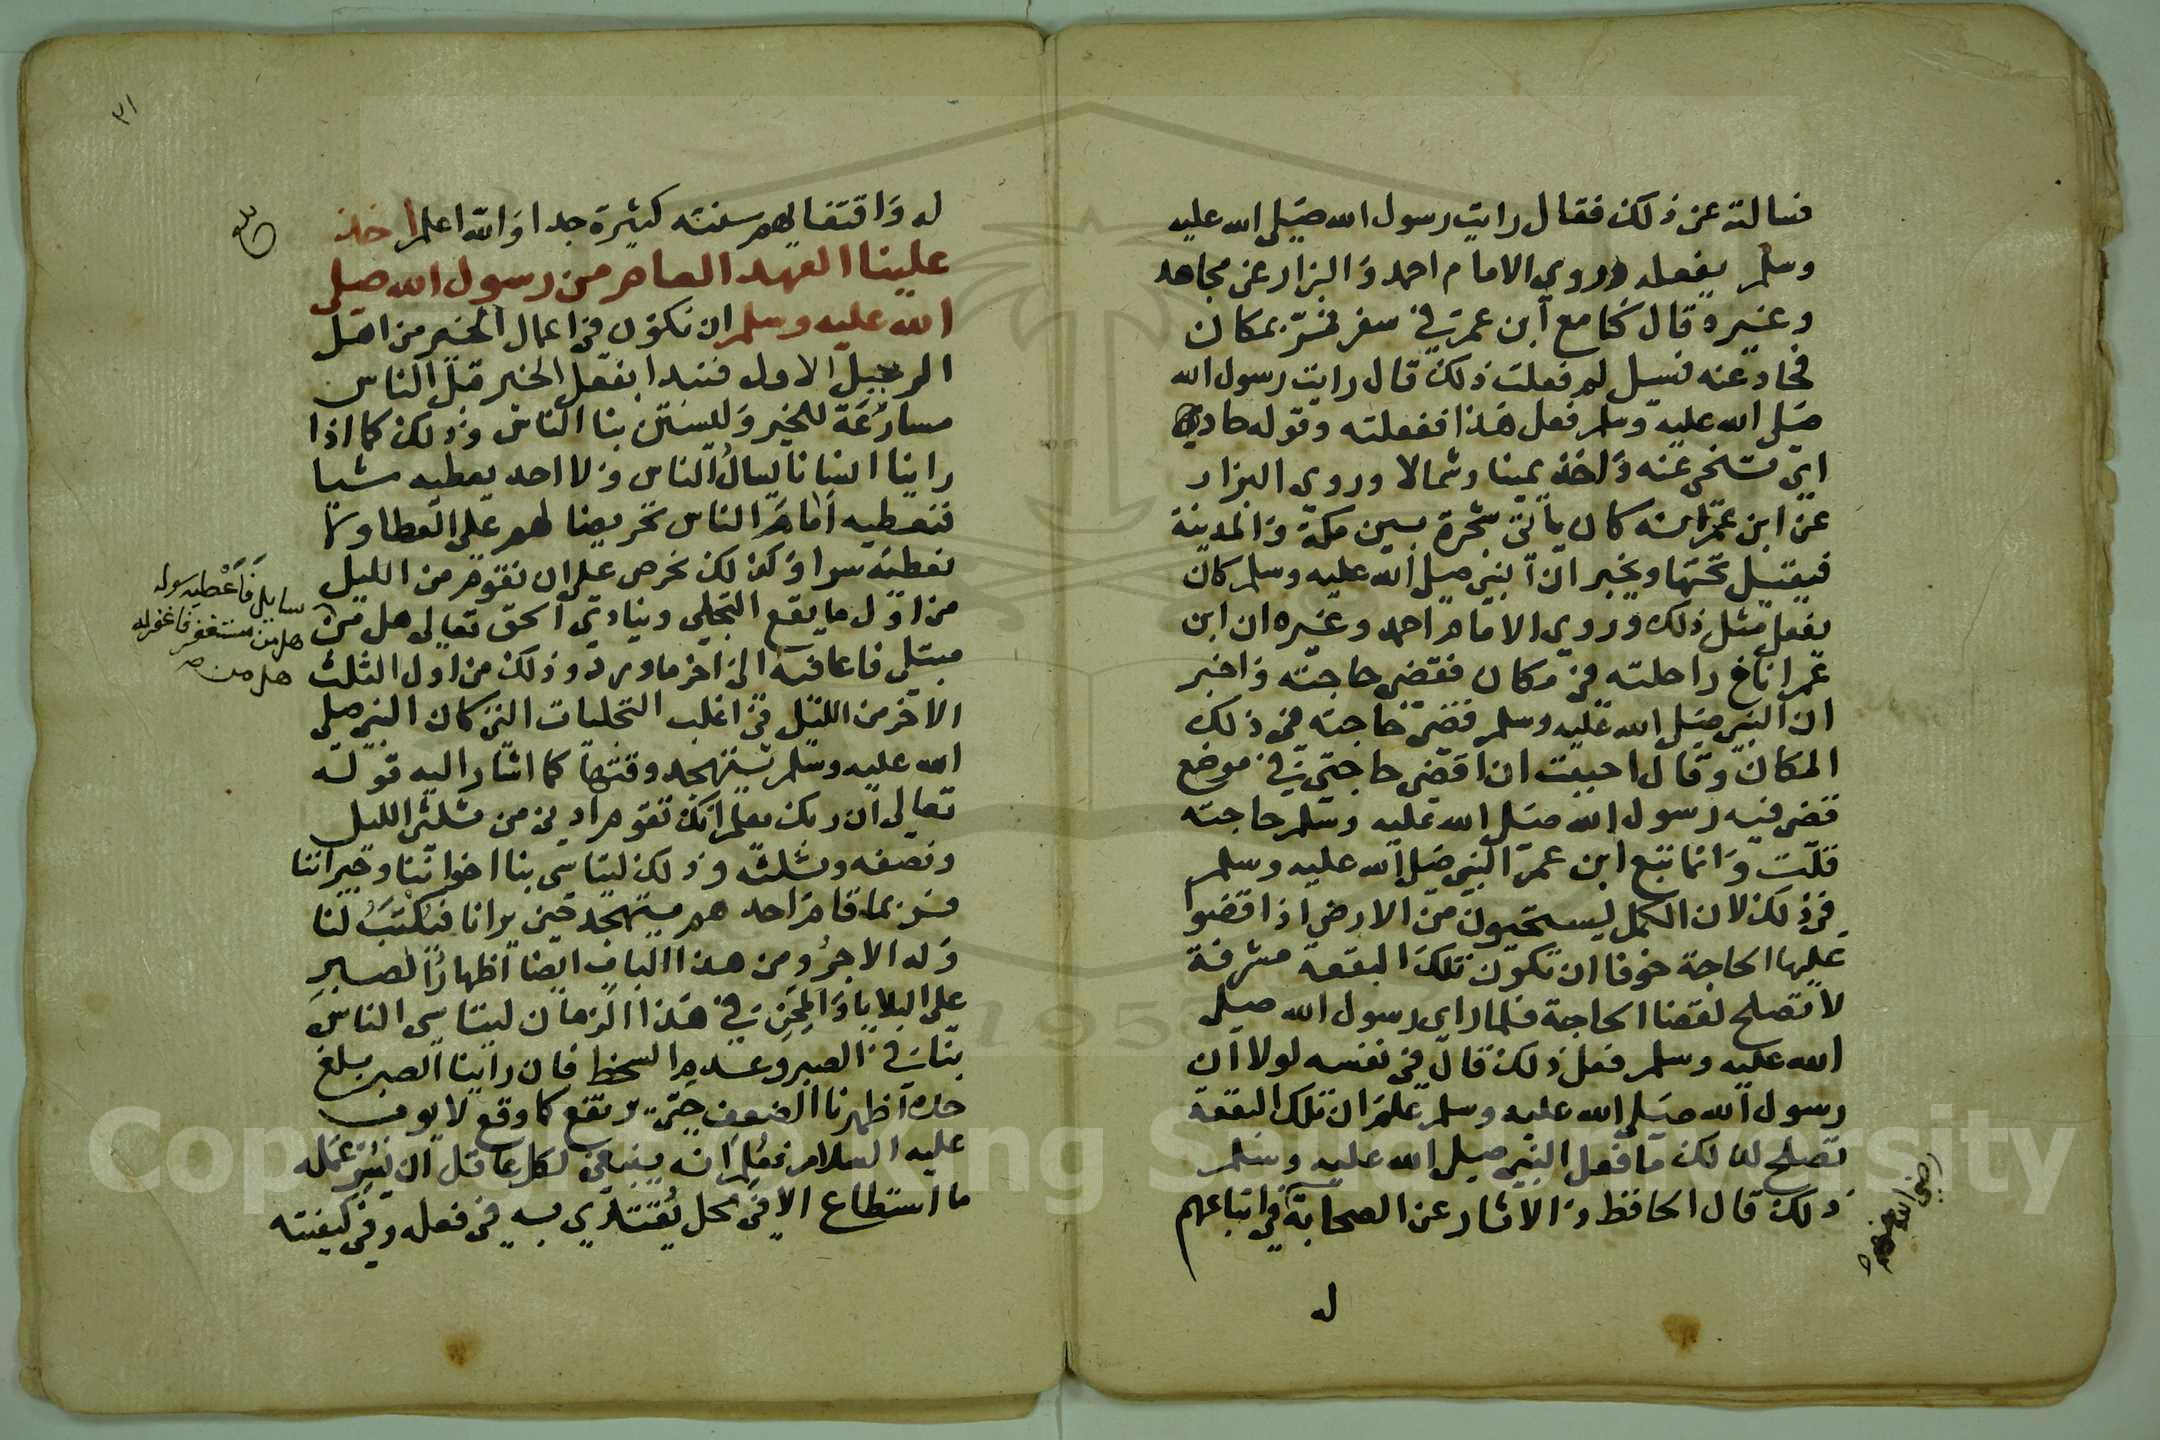 فسالته عن ذلك فقال رايت رسول الله صلى الله عليه
وسلم يفعله وروي الامام احمد والبزار عن مجاهد
وغيره قال كنا مع ابن عمر في سفر فمر بمكان
فحاد عنه فسيل لم فعلت ذلك قال رايت رسول الله
صلى الله عليه وسلم فعل هذا ففعلته وقوله حاد
اي تنحى عنه واخذ يمينا وشمالا وروي البزار
عن ابن عمر انه كان ياتي شجرة بين مكة والمدينة
فيقيل تحتها ويخبر ان النبي صلى الله عليه وسلم كان
يفعل مثل ذلك وروي الامام احمد وغيره ان ابن
عمر اناخ راحلته في مكان فقضى حاجته واخبر
ان النبي صلى الله عليه وسلم قضى حاجته في ذلك
المكان وقال احببت ان اقضي حاجتي في موضع
قضى فيه رسول الله صلى الله عليه وسلم حاجته
قلت وانما تتبع ابن عمر النبي صلى الله عليه وسلم
في ذلك لان الكمل يستحيون من الارض اذا قضوا
عليها الحاجة خوفا ان تكون تلك البقعة مشرفة
لا تصلح لقضا الحاجة فلما راى رسول الله صلى
الله عليه وسلم فعل ذلك قال في نفسه لولا ان
رسول الله صلى الله عليه وسلم علم ان تلك البقعة
تصلح لذلك ما فعل النبي صلى الله عليه وسلم
ذلك قال الحافظ والاثار عن الصحابة في اتباعهم
رضي الله عنهم
له
٣١
له واقتفايهم سنته كثيرة جدا والله اعلم اخذ
علينا العهد العام من رسول الله صلى
الله عليه وسلم ان نكون في اعمال الخير من اهل
الرعيل الاول فنبدا بفعل الخير قبل الناس
مسارعة للخير وليستن بنا الناس وذلك كما اذا
راينا انسانا يسال الناس ولا احد يعطيه شيا
فنعطيه امام الناس تحريضا لهم على العطا ولا
نعطيه سرا وكذلك نحرص على ان نقوم من الليل
من اول ما يقع التجلي وينادي الحق تعالى هل من
سايل فاعطيه سوله
هل من مستغفر فاغفر له
هل من
مبتلى فاعافيه الى اخر ما ورد وذلك من اول الثلث
الاخر من الليل في اغلب التجليات التي كان النبي صلى
الله عليه وسلم يتهجد وقتها كما اشار اليه قوله
تعالى ان ربك يعلم انك تقوم ادنى من ثلثي الليل
ونصفه وثلثه وذلك ليتاسى بنا اخواننا وجيراننا
فربما قام احدهم يتهجد حين يرانا فيكتب لنا
وله الاجر ومن هذا الباب ايضا اظهارنا الصبر
على البلايا والمحن في هذا الزمان ليتاسى الناس
بنا في الصبر وعدم السخط فان راينا الصبر بلغ
حده اظهرنا الضعف حتى يرتفع كما وقع لايوب
عليه السلام فعلم انه ينبغي لكل عاقل ان يستر عمله
ما استطاع الا في محل يقتدي به في فعله وفي كيفيته